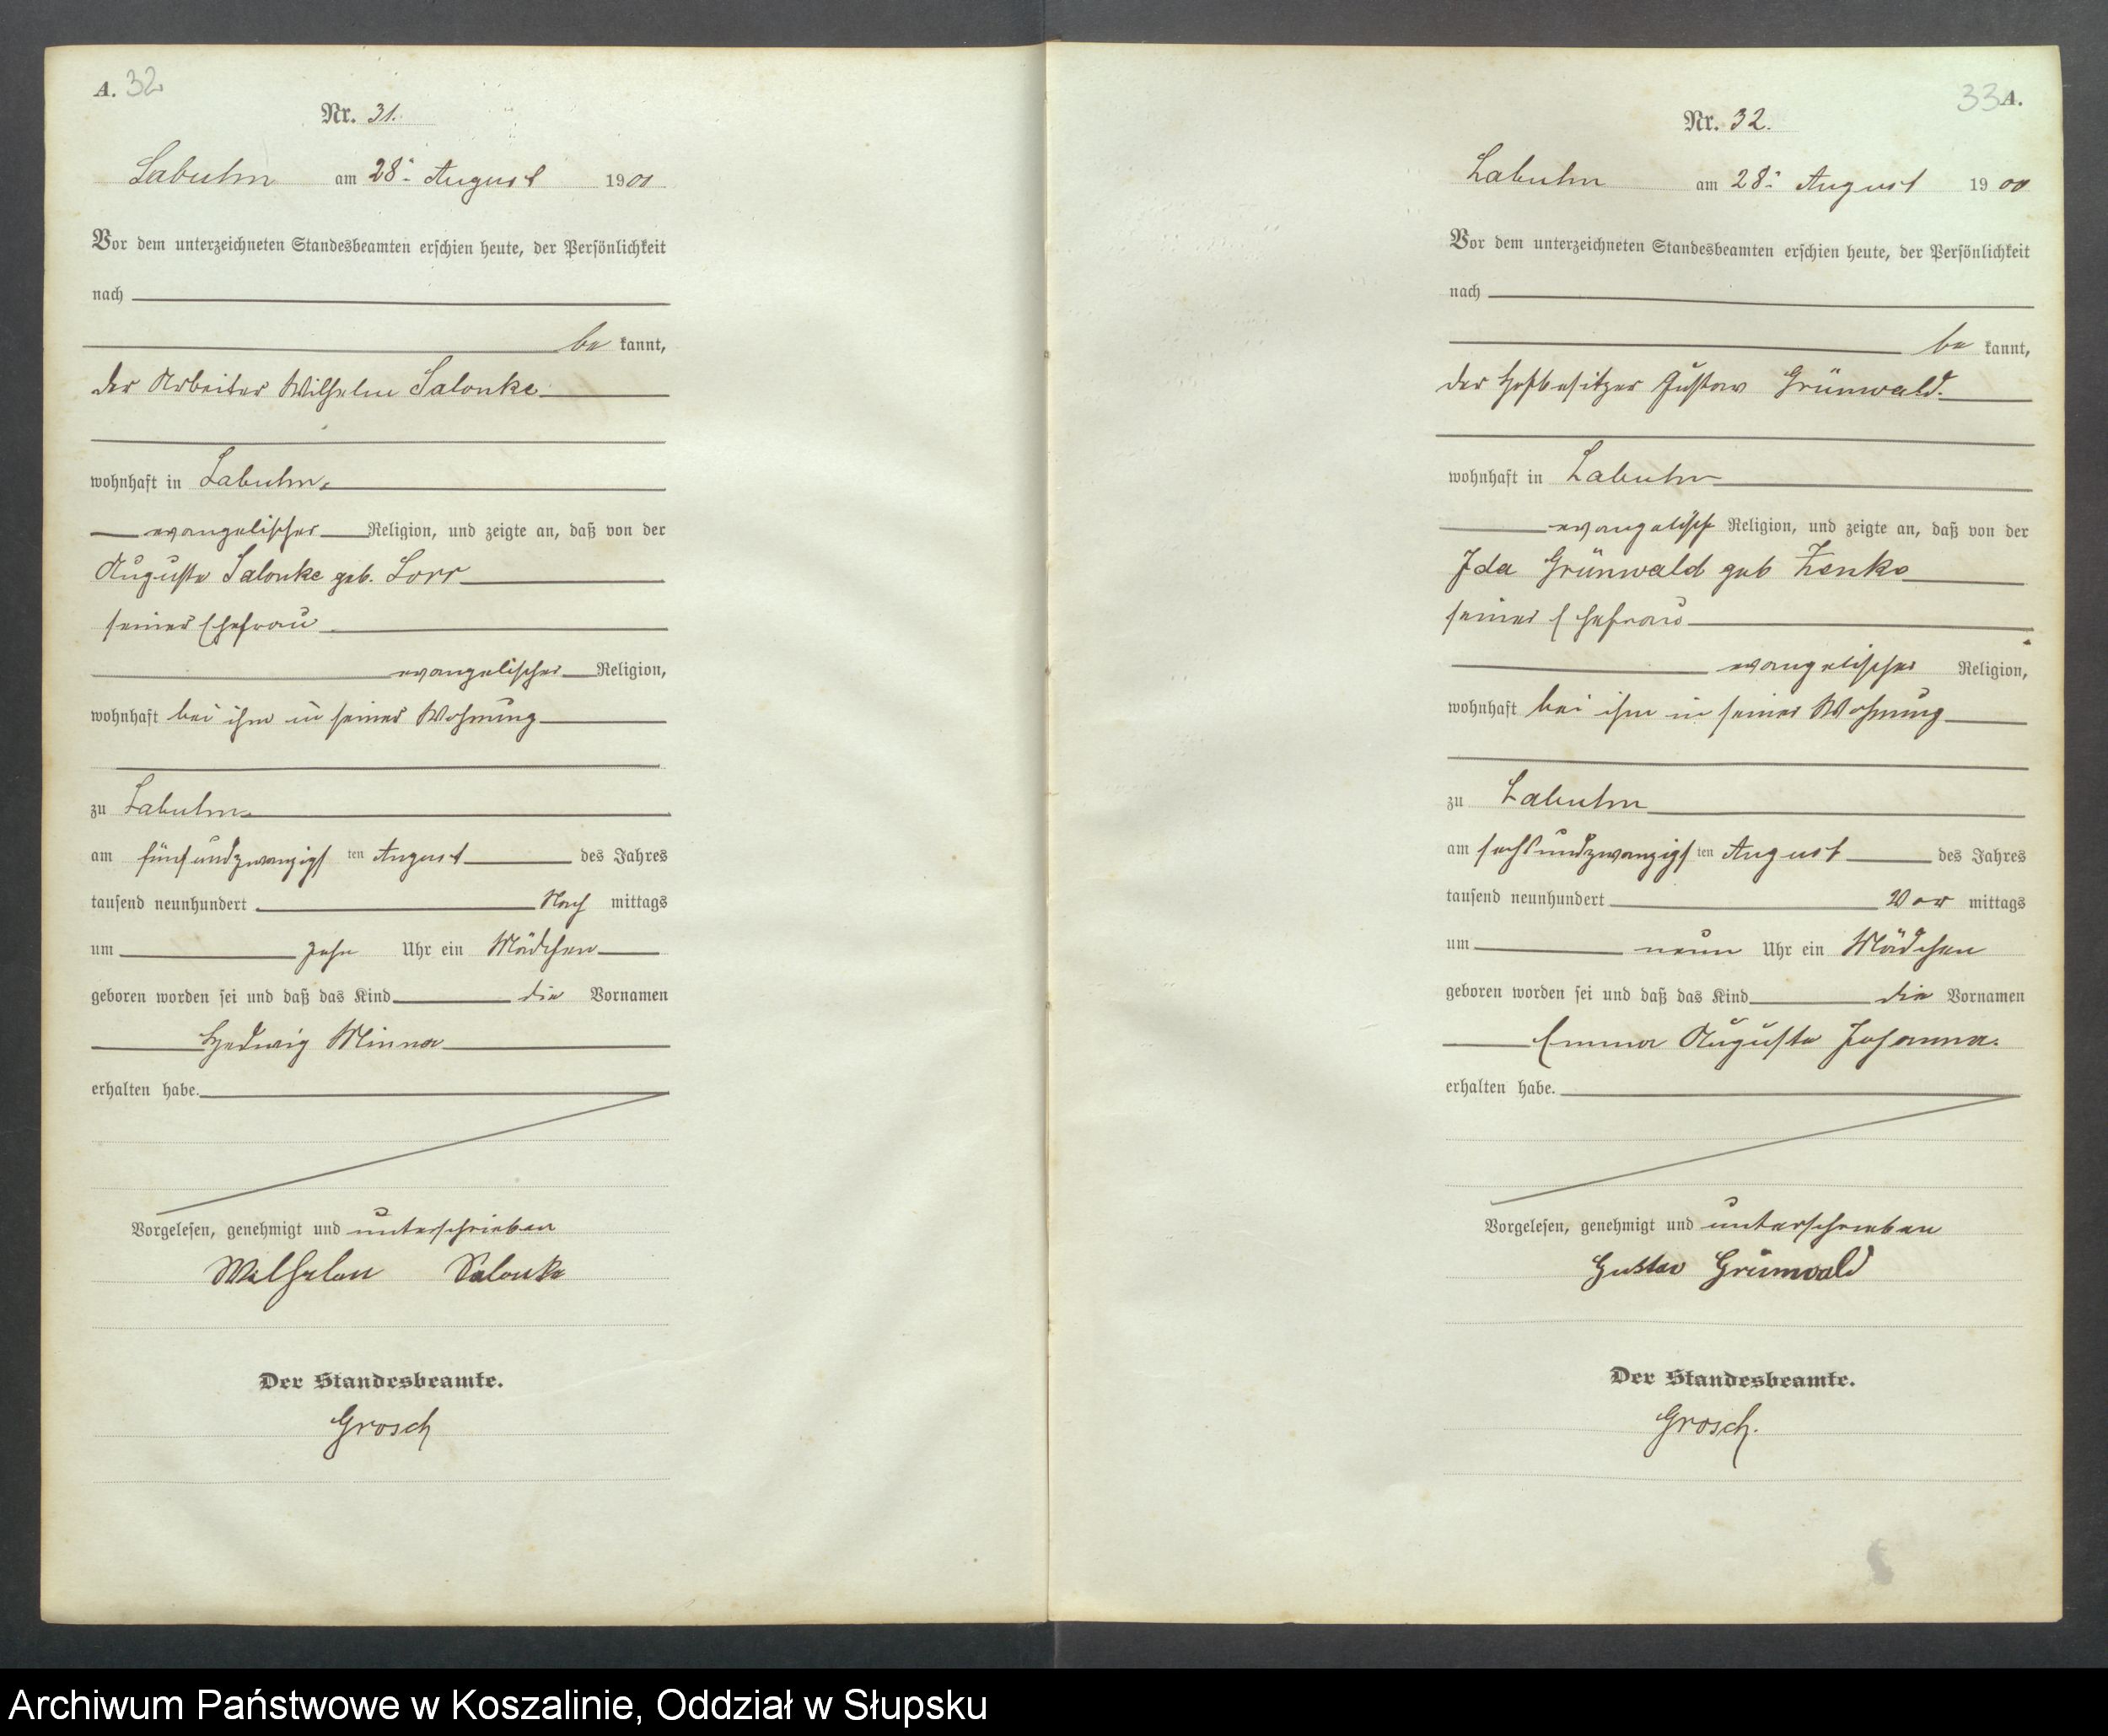 A. 32
Nr. 31.
Labuhn am 28. August 1900
Vor dem unterzeichneten Standesbeamten erschien heute, der Persönlichkeit
nach
be kannt,
der Arbeiter Wilhelm Salonke
wohnhaft in Labuhn,
evangelischer Religion, und zeigte an, daß von der
Auguste Salonke geb. Lorr
seiner Ehefrau
evangelischer Religion,
wohnhaft bei ihm in seiner Wohnung
zu Labuhn
am fünfundzwanzigs ten August des Jahres
tausend neunhundert Nach mittags
um zehn Uhr ein Mädchen
geboren worden sei und daß das Kind die Vornamen
Hedwig Minna
erhalten habe.
Vorgelesen, genehmigt und unterschrieben
Wilhelm Salonke
Der Standesbeamte.
Grosch
33 A.
Nr. 32.
Labuhn am 28. August 1900
Vor dem unterzeichneten Standesbeamten erschien heute, der Persönlichkeit
nach
be kannt,
der Hofbesitzer Gustav Grünwald.
wohnhaft in Labuhn
evangelisch Religion, und zeigte an, daß von der
Ida Grünwald geb Zenke
seiner Ehefrau
evangelischer Religion,
wohnhaft bei ihm in seiner Wohnung
zu Labuhn
am sechsundzwanzigs ten August des Jahres
tausend neunhundert Vor mittags
um neun Uhr ein Mädchen
geboren worden sei und daß das Kind die Vornamen
Emma Auguste Johanna.
erhalten habe.
Vorgelesen, genehmigt und unterschrieben
Gustav Grünwald
Der Standesbeamte.
Grosch.
Archiwum Państwowe w Koszalinie, Oddział w Słupsku